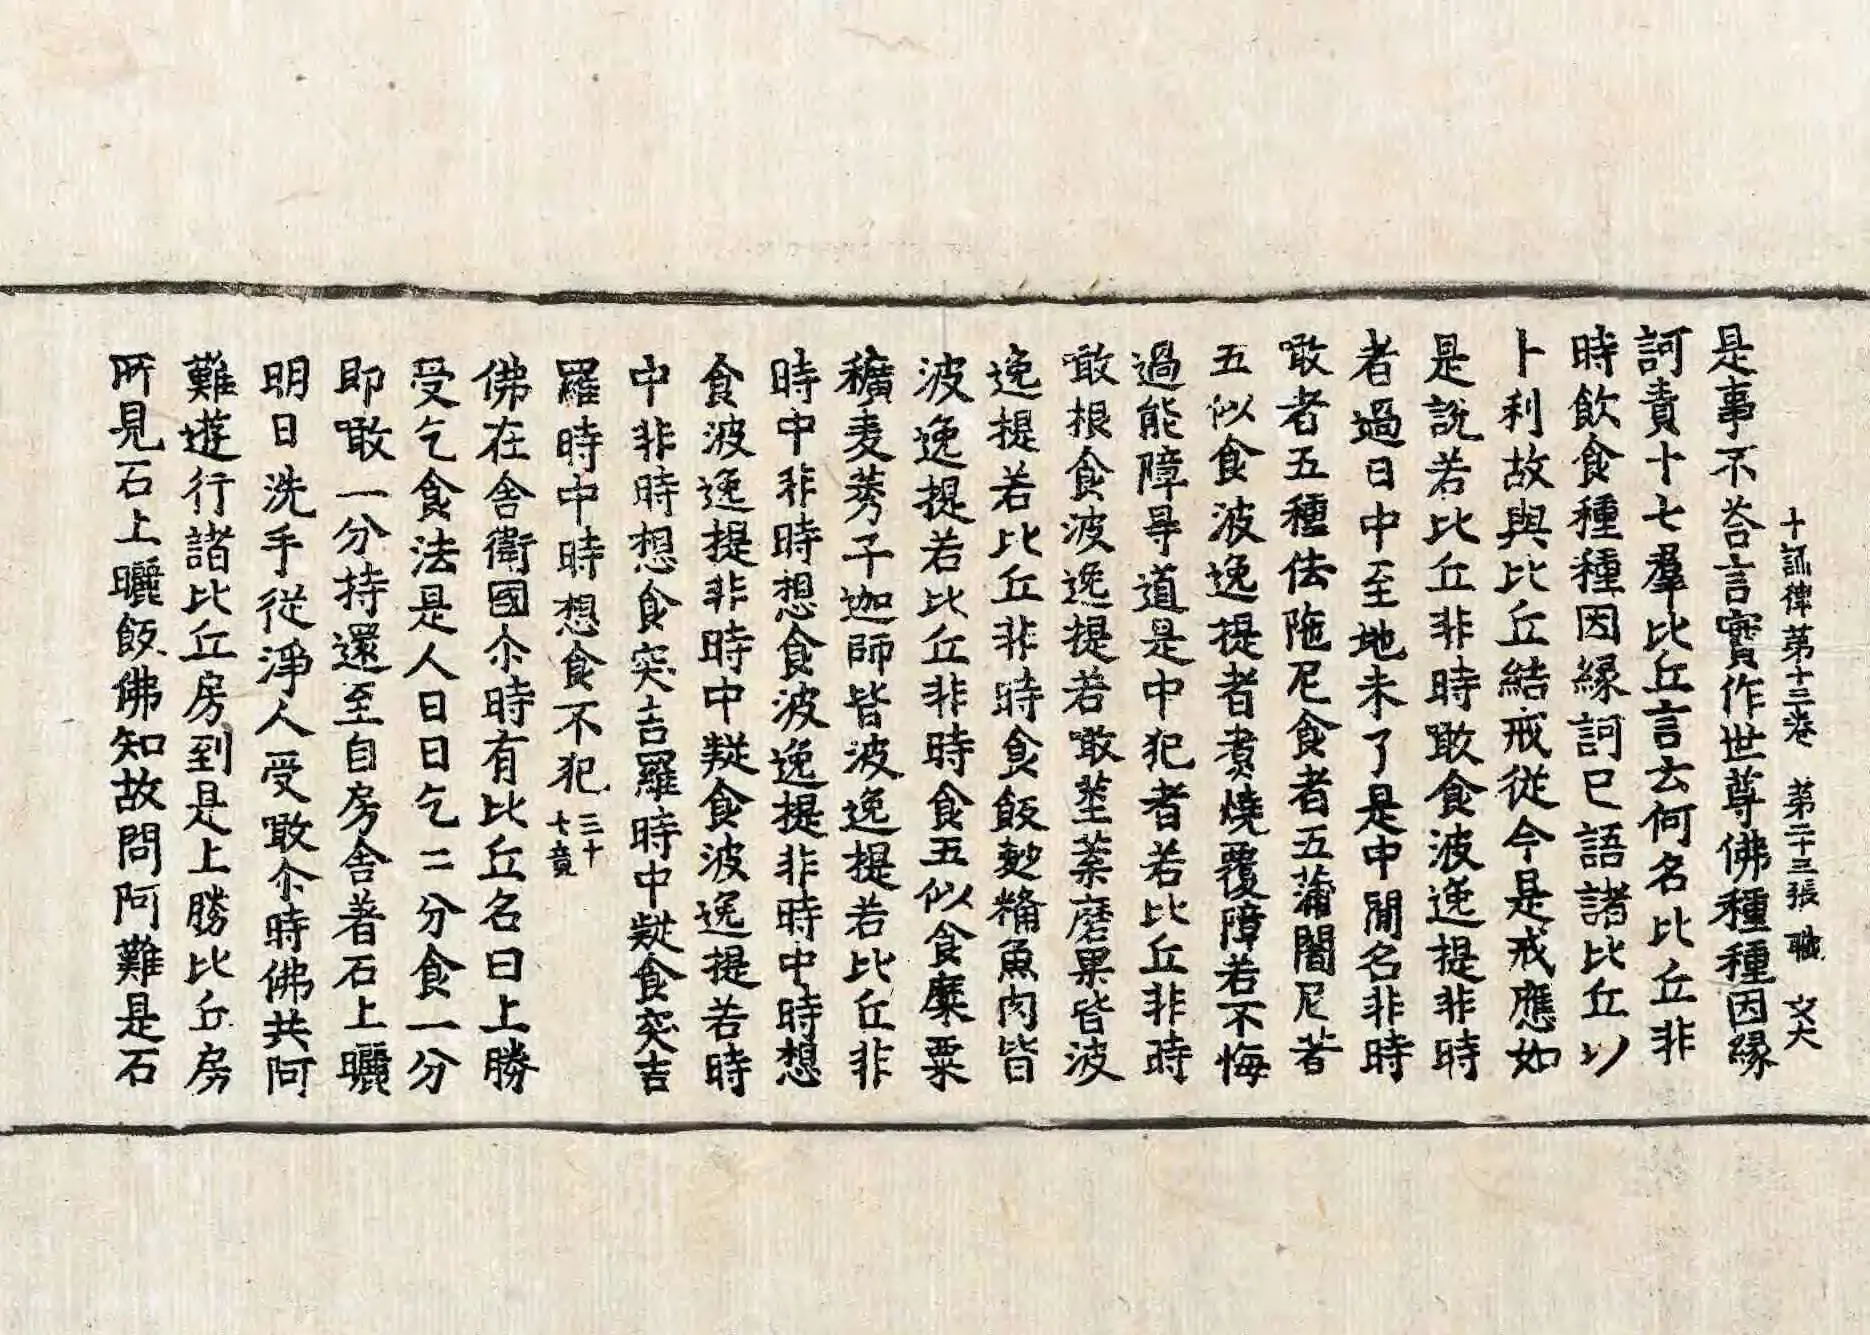 十誦律第十三卷　第二十三張　職　文大
是事不荅言實作世尊佛種種因縁
訶責十七羣比丘言云何名比丘非
時飲食種種因緣訶已語諸比丘以
十利故與比丘結戒從今是戒應如
是說若比丘非時噉食波逸提非時
者過日中至地未了是中間名非時
噉者五種佉陁尼食者五蒲闍尼若
五似食波逸提者煑燒覆障若不悔
過能障㝵道是中犯者若比丘非時
噉根食波逸提若噉莖葉磨菓皆波
逸提若比丘非時食飯麨糒魚肉皆
波逸提若比丘非時食五似食糜粟
穬麦莠子迦師皆波逸提若比丘非
時中非時想食波逸提非時中時想
食波逸提非時中疑食波逸提若時
中非時想食突吉羅時中疑食突吉
羅時中時想食不犯三十七竟
佛在舍衛國尒時有比丘名曰上勝
受乞食法是人日日乞二分食一分
即噉一分持還至自房舍著石上曬
明日洗手從淨人受噉尒時佛共阿
難遊行諸比丘房到是上勝比丘房
所見石上曬飯佛知故問阿難是石